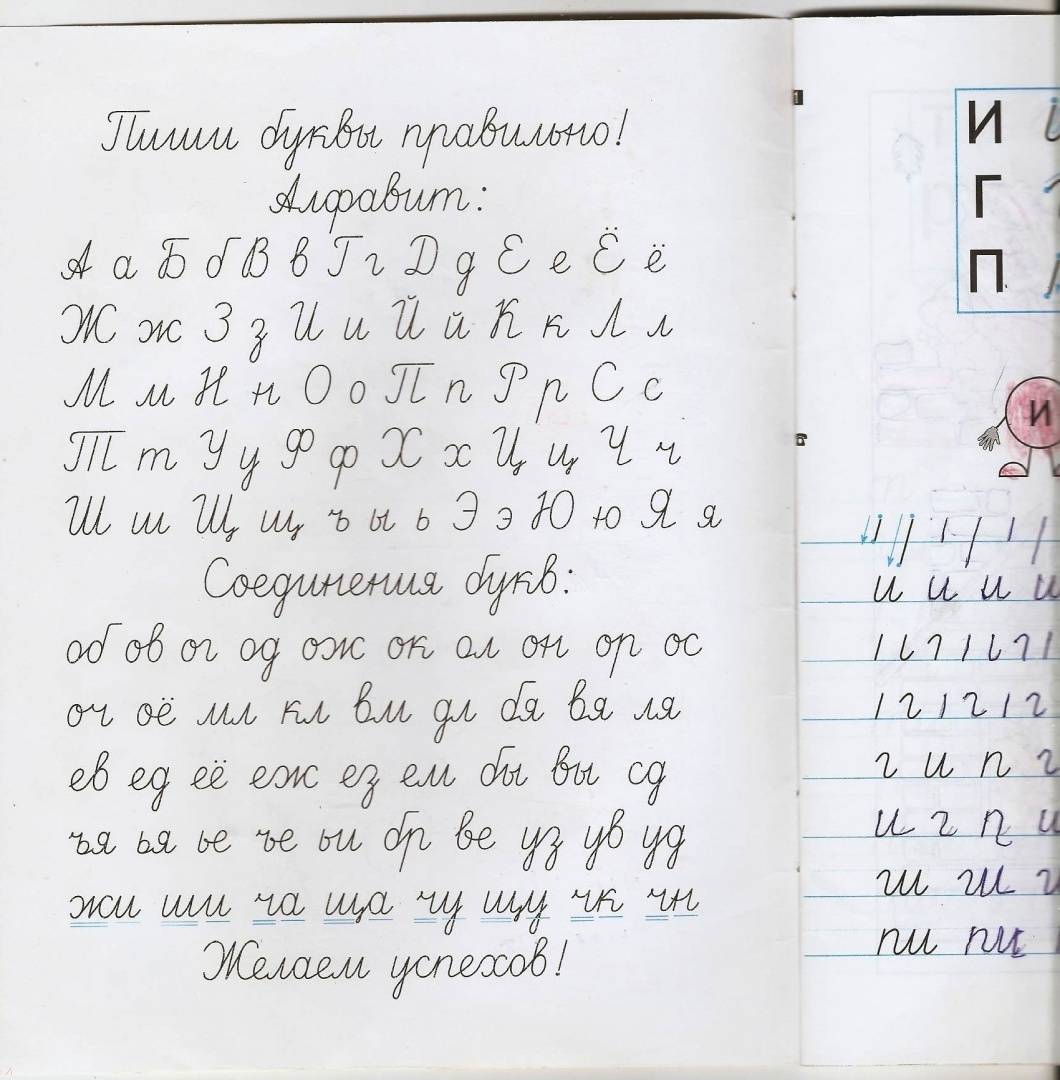 Пиши буквы правильно!
Алфавит:
А а Б б В в Г г Д д Е е Ё ё
Ж ж З з И и Й й К к Л л
М м Н н О о П п Р р С с
Т т У у Ф ф Х х Ц ц Ч ч
Ш ш Щ щ ъ ы ь Э э Ю ю Я я
Соединения букв:
об ов ог од ож ок ол он ор ос
оч оё мл кл вм дл бя вя ля
ев ед её еж ез ем бы вы сд
ъя ья ье ъе ьи бр ве уз ув уд
жи ши ча ща чу щу чк чн
Желаем успехов!
И
Г
П
И
и и и и
г и п г
и г п и
ш ш
пи пи